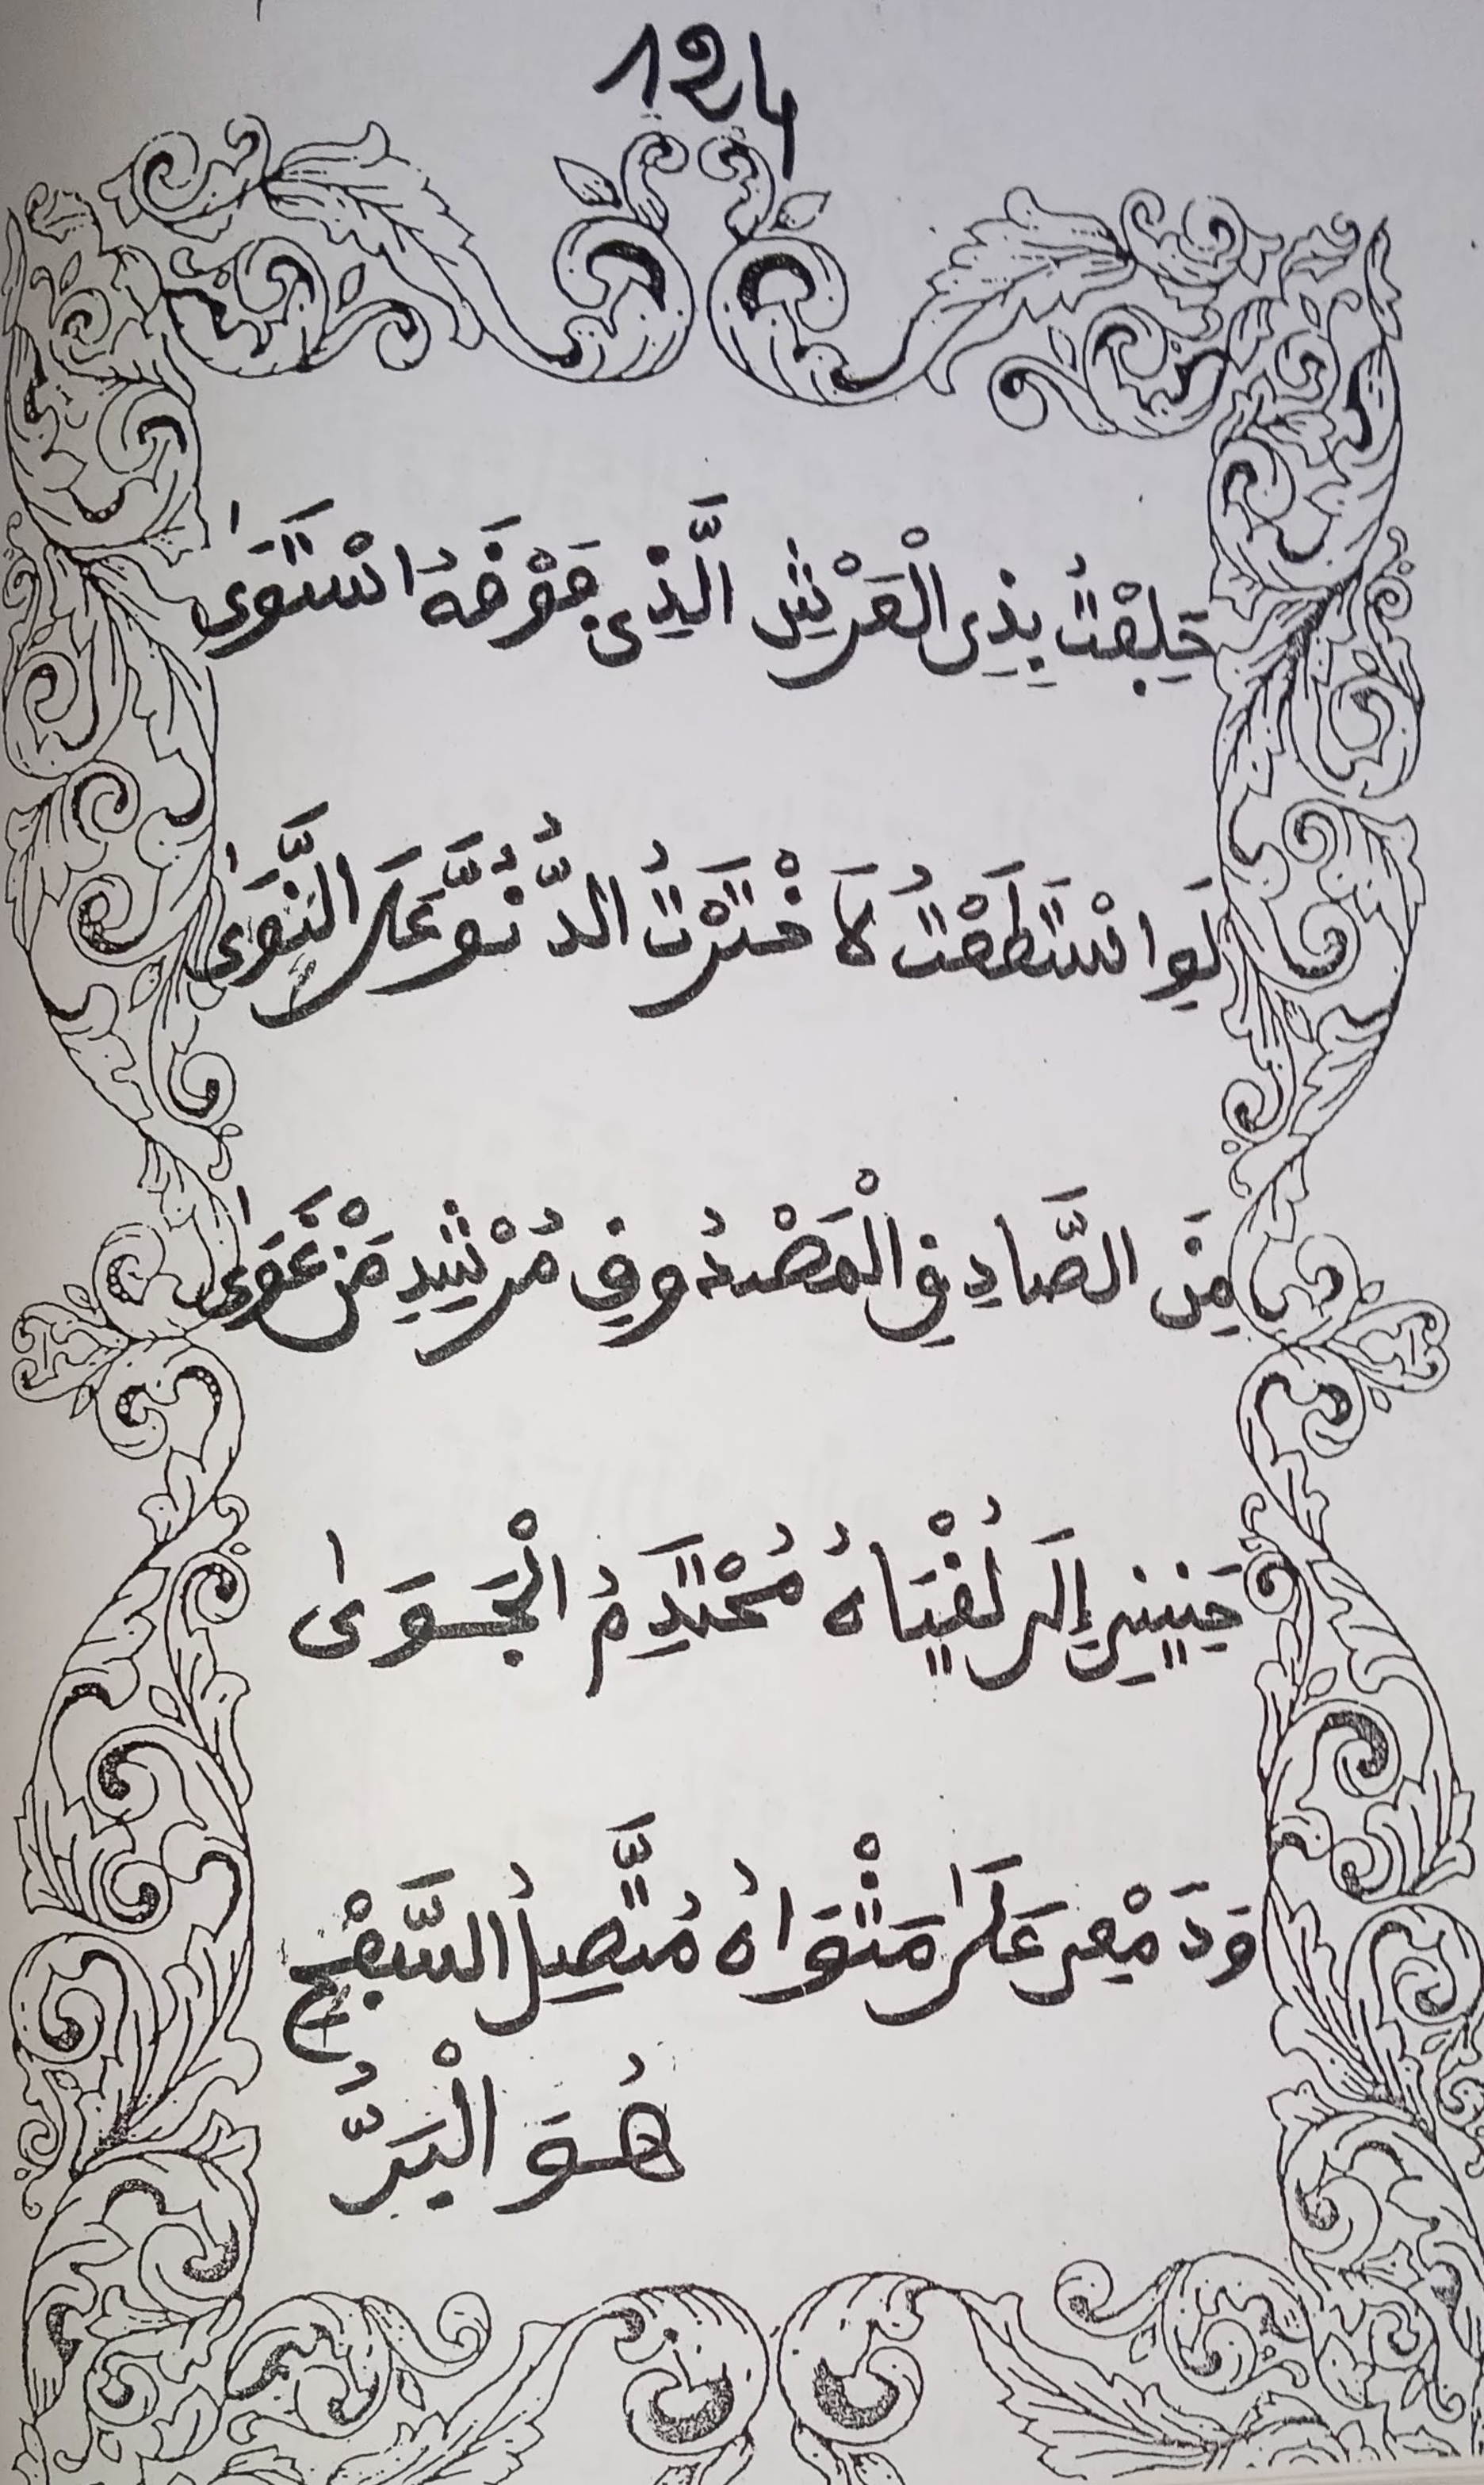 124
حَلِفْتُ بِذِى الْعَرْشِ الَّذِى فَوْقَهُ اسْتَوَىٰ
لَوِ اسْتَطَعْتُ لَاخْتَرْتُ الدُّنُوَّ عَلَى النَّوَىٰ
مِنَ الصَّادِقِ الْمَصْدُوقِ مُرْشِدِ مَنْ غَوَىٰ
حَنِينِي إِلَى لُقْيَاهُ مُحْتَدِمُ الْجَوَىٰ
وَدَمْعِي عَلَىٰ مَثْوَاهُ مُتَّصِلُ السَّفْحِ
هُوَ الْبَرُّ